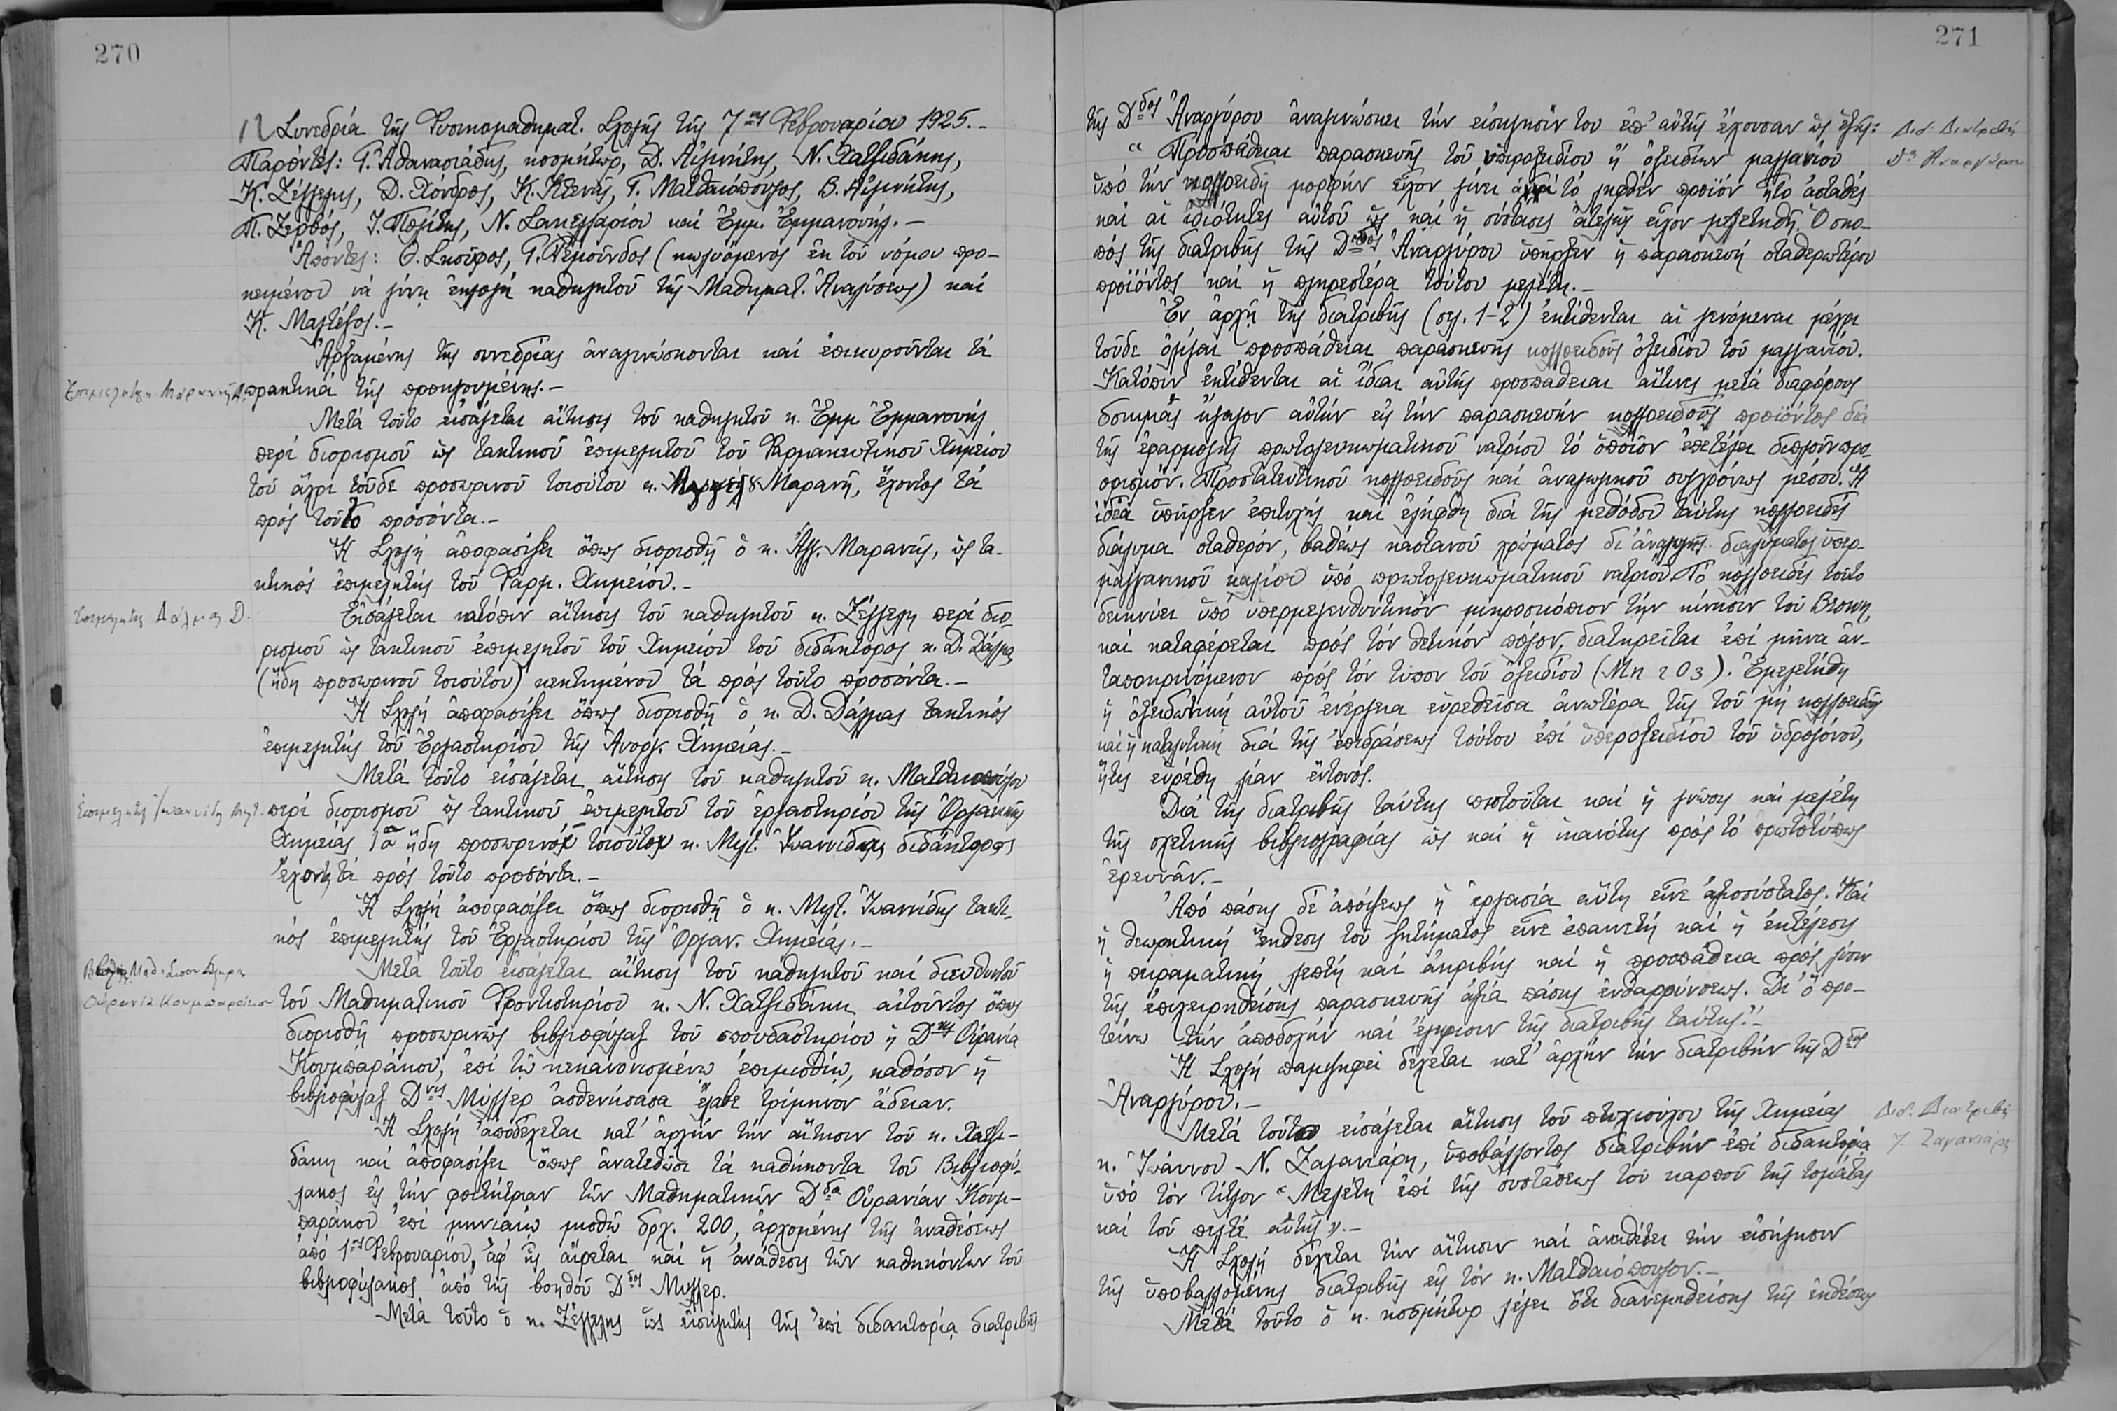 270
12 Συνεδρία τῆς Φυσικομαθηματ. Σχολῆς τῆς 7ης Φεβρουαρίου 1925.-
Παρόντες: Γ. Ἀθανασιάδης, κοσμήτωρ, Δ. Αἰγινήτης, Ν. Χατζιδάκης,
Κ. Ζέγγελης, Δ. Χόνδρος, Κ. Κτενᾶς, Γ. Ματθαιόπουλος, Β. Αἰγινήτης,
Π. Ζερβός, Ι. Πολίτης, Ν. Σακελλαρίου καί Ἐμμ. Ἐμμανουήλ.-
Ἀπόντες: Θ. Σκοῦφος, Γ. Ρεμοῦνδος (κωλυόμενος ἐκ τοῦ νόμου προ-
κειμένου νά γίνῃ ἐκλογή καθηγητοῦ τῆς Μαθηματ. Ἀναλύσεως) καί
Κ. Μαλτέζος.-
Ἀρξαμένης τῆς συνεδρίας ἀναγινώσκονται καί ἐπικυροῦνται τά
πρακτικά τῆς προηγουμένης.-
Μετά τοῦτο εἰσάγεται αἴτησις τοῦ καθηγητοῦ κ. Ἐμμ. Ἐμμανουήλ
περί διορισμοῦ ὡς τακτικοῦ ἐπιμελητοῦ τοῦ Φαρμακευτικοῦ Χημείου
τοῦ ἄχρι τοῦδε προσωρινοῦ τοιούτου κ. Μαρανῆ, ἔχοντος τά
πρός τοῦτο προσόντα.-
Ἡ Σχολή ἀποφασίζει ὅπως διορισθῇ ὁ κ. Ἀγγ. Μαρανῆς, ὡς τα-
κτικός ἐπιμελητής τοῦ Φαρμ. Χημείου.-
Εἰσάγεται κατόπιν αἴτησις τοῦ καθηγητοῦ κ. Ζέγγελη περί διο-
ρισμοῦ ὡς τακτικοῦ ἐπιμελητοῦ τοῦ Χημείου τοῦ διδάκτορος κ. Δ. Δάλμα
(ἤδη προσωρινοῦ τοιούτου) κεκτημένου τά πρός τοῦτο προσόντα.-
Ἡ Σχολή ἀποφασίζει ὅπως διορισθῇ ὁ κ. Δ. Δάλμας τακτικός
ἐπιμελητής τοῦ Ἐργαστηρίου τῆς Ἀνοργ. Χημείας.-
Μετά τοῦτο εἰσάγεται αἴτησις τοῦ καθηγητοῦ κ. Ματθαιοπούλου
περί διορισμοῦ ὡς τακτικοῦ ἐπιμελητοῦ τοῦ ἐργαστηρίου τῆς Ὀργανικῆς
Χημείας τοῦ ἤδη προσωρινοῦ τοιούτου κ. Μιλτ. Ἰωαννίδου διδάκτορος
ἔχοντος τά πρός τοῦτο προσόντα.-
Ἡ Σχολή ἀποφασίζει ὅπως διορισθῇ ὁ κ. Μιλτ. Ἰωαννίδης τακτι-
κός ἐπιμελητής τοῦ Ἐργαστηρίου τῆς Ὀργαν. Χημείας.-
Μετά τοῦτο εἰσάγεται αἴτησις τοῦ καθηγητοῦ καί διευθυντοῦ
τοῦ Μαθηματικοῦ Φροντιστηρίου κ. Ν. Χατζιδάκη αἰτοῦντος ὅπως
διορισθῇ προσωρινῶς βιβλιοφύλαξ τοῦ σπουδαστηρίου ἡ Δνὶς Οὐρανία
Κουμπαράκου, ἐπί τῷ κεκανονισμένῳ ἐπιμισθίῳ, καθόσον ἡ
βιβλιοφύλαξ Δνὶς Μύλλερ ἀσθενήσασα ἔλαβε τρίμηνον ἄδειαν.
Ἡ Σχολή ἀποδέχεται κατ' ἀρχήν τήν αἴτησιν τοῦ κ. Χατζι-
δάκη καί ἀποφασίζει ὅπως ἀνατεθῶσι τά καθήκοντα τοῦ Βιβλιοφύ-
λακος εἰς τήν φοιτήτριαν τῶν Μαθηματικῶν Δδα Οὐρανίαν Κουμ-
παράκου ἐπί μηνιαίῳ μισθῷ δρχ. 200, ἀρχομένης τῆς ἀναθέσεως
ἀπό 1ης Φεβρουαρίου, ἀφ' ἧς αἴρεται καί ἡ ἀνάθεσις τῶν καθηκόντων τοῦ
βιβλιοφύλακος ἀπό τῆς βοηθοῦ Δδος Μύλλερ.
Μετά τοῦτο ὁ κ. Ζέγγελης ὡς εἰσηγητής τῆς ἐπί διδακτορίᾳ διατριβῆς
Ἐπιμελητής Μαρανῆς Α.
Ἐπιμελητής Δάλμας Δ.
Ἐπιμελητής Ἰωαννίδης Μιλτ.
Βιβλιοφ. Μαθ. Σπουδ.
Οὐρανία Κουμπαράκου
271
τῆς Δδος Ἀναργύρου ἀναγινώσκει τήν εἰσήγησίν του ἐπ' αὐτῆς ἔχουσαν ὡς ἑξῆς:
"Προσπάθειαι παρασκευῆς τοῦ ὑπεροξειδίου ἤ ὀξειδίων μαγγανίου
ὑπό τήν κολλοειδῆ μορφήν εἶχον γίνει ἀλλά τό ληφθέν προϊόν ἦτο ἀσταθές
καί αἱ ἰδιότητες αὐτοῦ ὡς καί ἡ σύστασις ἀτελῶς εἶχον μελετηθῆ. Ὁ σκο-
πός τῆς διατριβῆς τῆς Δδος Ἀναργύρου ὑπῆρξεν ἡ παρασκευή σταθερωτέρου
προϊόντος καί ἡ πληρεστέρα τούτου μελέτη.-
Ἐν ἀρχῇ τῆς διατριβῆς (σελ. 1-2) ἐκτίθενται αἱ γενόμεναι μέχρι
τοῦδε ὀλίγαι προσπάθειαι παρασκευῆς κολλοειδοῦς ὀξειδίου τοῦ μαγγανίου.
Κατόπιν ἐκτίθενται αἱ ἴδιαι αὐτῆς προσπάθειαι αἵτινες μετά διαφόρους
δοκιμάς ἤγαγον αὐτήν εἰς τήν παρασκευήν κολλοειδοῦς προϊόντος διά
τῆς ἐφαρμογῆς πρωταλευκωματικοῦ νατρίου τό ὁποῖον ἐπετέλει διπλοῦν προ-
ορισμόν. Προστατευτικοῦ κολλοειδοῦς καί ἀναγωγικοῦ συγχρόνως μέσου. Ἡ
ἰδέα ὑπῆρξεν ἐπιτυχής καί ἐλήφθη διά τῆς μεθόδου ταύτης κολλοειδές
διάλυμα σταθερόν, βαθέως καστανοῦ χρώματος δι' ἀναγωγῆς διαλύματος ὑπερ-
μαγγανικοῦ καλίου ὑπό πρωταλευκωματικοῦ νατρίου. Τό κολλοειδές τοῦτο
δεικνύει ὑπό ὑπερμεγενθυντικόν μικροσκόπιον τήν κίνησιν τοῦ Brown,
καί καταφέρεται πρός τόν θετικόν πόλον, διατηρεῖται ἐπί μῆνα ἀν-
ταποκρινόμενον πρός τόν τύπον τοῦ ὀξειδίου (Mn 2 O3). Ἐμελετήθη
ἡ ὀξειδωτική αὐτοῦ ἐνέργεια εὑρεθεῖσα ἀνωτέρα τῆς τοῦ μή κολλοειδοῦς
καί ἡ καταλυτική διά τῆς ἐπιδράσεως τούτου ἐπί ὑπεροξειδίου τοῦ ὑδρογόνου,
ἥτις εὑρέθη λίαν ἔντονος.
Διά τῆς διατριβῆς ταύτης πιστοῦται καί ἡ γνῶσις καί μελέτη
τῆς σχετικῆς βιβλιογραφίας ὡς καί ἡ ἱκανότης πρός τό πρωτοτύπως
ἐρευνᾶν.-
Ἀπό πάσης δέ ἀπόψεως ἡ ἐργασία αὕτη εἶνε ἀξιοσύστατος. Καί
ἡ θεωρητική ἔκθεσις τοῦ ζητήματος εἶνε ἐπαινετή καί ἡ ἐκτέλεσις
ἡ πειραματική λεπτή καί ἀκριβής καί ἡ προσπάθεια πρός λύσιν
τῆς ἐπιχειρηθείσης παρασκευῆς ἀξία πάσης ἐνθαρρύνσεως. Δι' ὅ προ-
τείνω τήν ἀποδοχήν καί ἔγκρισιν τῆς διατριβῆς ταύτης."-
Ἡ Σχολή παμψηφεί δέχεται κατ' ἀρχήν τήν διατριβήν τῆς Δδος
Ἀναργύρου.-
Μετά τοῦτο εἰσάγεται αἴτησις τοῦ πτυχιούχου τῆς Χημείας
κ. Ἰωάννου Ν. Ζαγανιάρη, ὑποβάλλοντος διατριβήν ἐπί διδακτορίᾳ
ὑπό τόν τίτλον "Μελέτη ἐπί τῆς συστάσεως τοῦ καρποῦ τῆς τομάτας
καί τοῦ πελτέ αὐτῆς".-
Ἡ Σχολή δέχεται τήν αἴτησιν καί ἀναθέτει τήν εἰσήγησιν
τῆς ὑποβαλλομένης διατριβῆς εἰς τόν κ. Ματθαιόπουλον.-
Μετά τοῦτο ὁ κ. κοσμήτωρ λέγει ὅτι διανεμηθείσης τῆς ἐκθέσεως
Διδ. Διατριβή
Δος Ἀναργύρου
Διδ. Διατριβή
Ζαγανιάρη